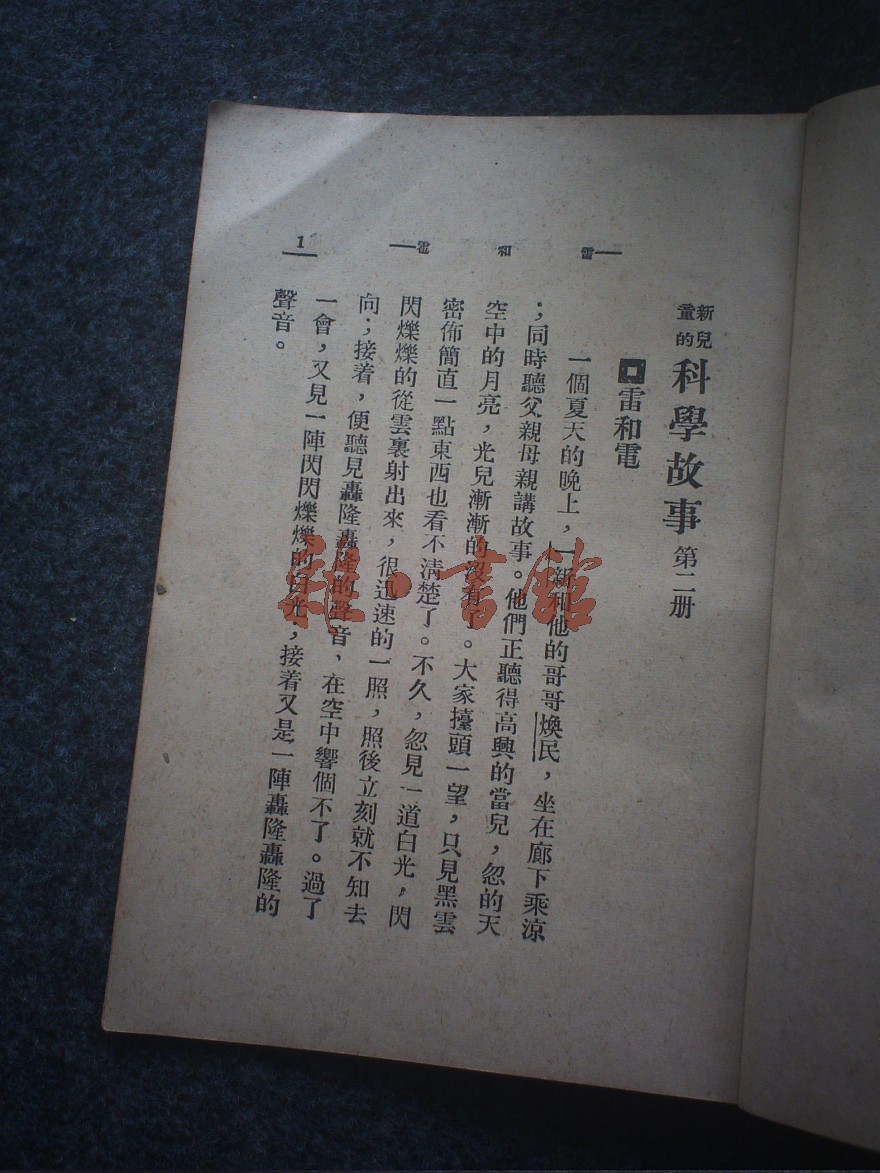 新兒童的科學故事 第二册
雷和電
一個夏天的晚上，一新和他的哥哥煥民，坐在廊下乘涼
；同時聽父親母親講故事。他們正聽得高興的當兒，忽的天
空中的月亮，光兒漸漸的沒有了。大家擡頭一望，只見黑雲
密佈簡直一點東西也看不清楚了。不久，忽見一道白光，閃
閃爍爍的從雲裏射出來，很迅速的一照，照後立刻就不知去
向；接着，便聽見轟隆轟隆的聲音，在空中響個不了。過了
一會，又見一陣閃閃爍爍的白光；接着又是一陣轟隆轟隆的
聲音。
雷和電
1
雜·書館